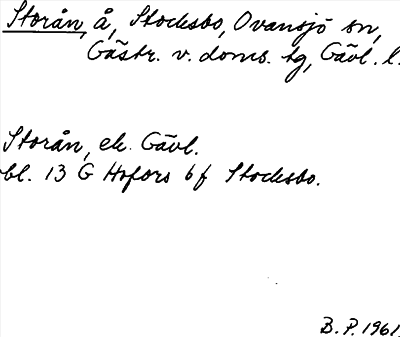 Storån, å, Stocksbo, Ovansjö sn,
Gästr. v. doms. tg, Gävl. l.
Storån, ek. Gävl.
bl. 13 G Hofors bf Stocksbo.
B. P. 1961.